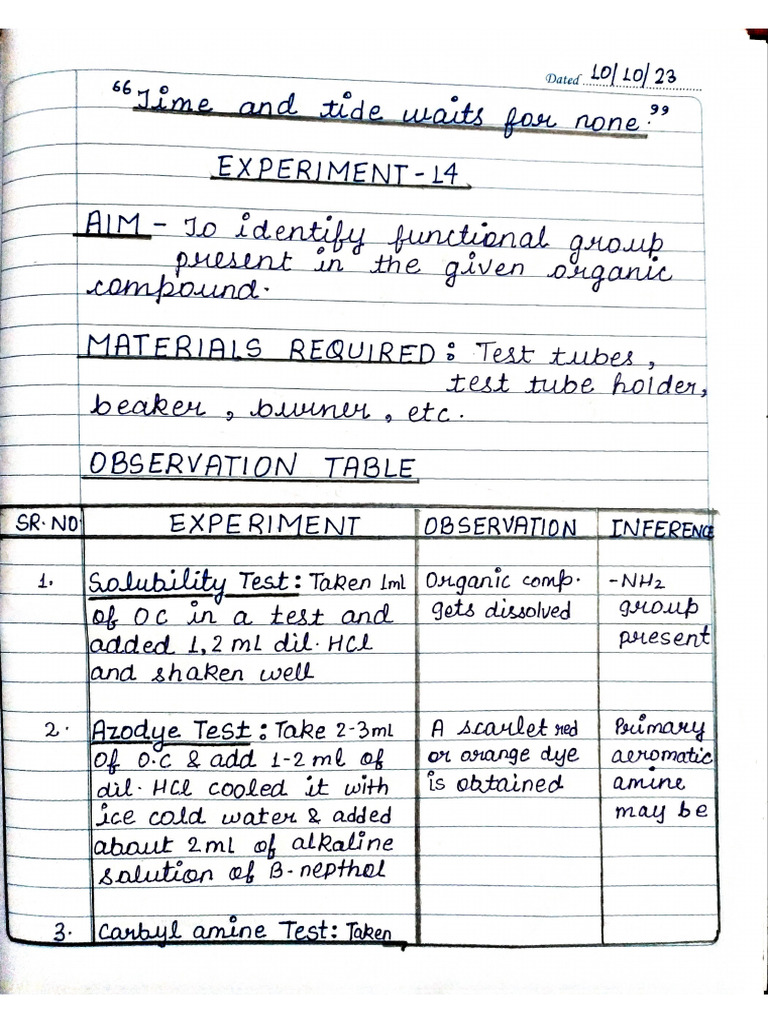 Dated 10/10/23
"Time and tide waits for none."
EXPERIMENT-14
AIM - To identify functional group
present in the given organic
compound.
MATERIALS REQUIRED: Test tubes,
test tube holder,
beaker, burner, etc.
OBSERVATION TABLE
SR.NO EXPERIMENT OBSERVATION INFERENCE
1. Solubility Test: Taken 1ml Organic comp. -NH2
of OC in a test and gets dissolved group
added 1,2 ml dil. HCl present
and shaken well
2. Azodye Test: Take 2-3ml A scarlet red Primary
of O.C & add 1-2 ml of or orange dye aeromatic
dil. HCl cooled it with is obtained amine
ice cold water & added may be
about 2ml of alkaline
solution of B-nepthol
3. Carbyl amine Test: Taken